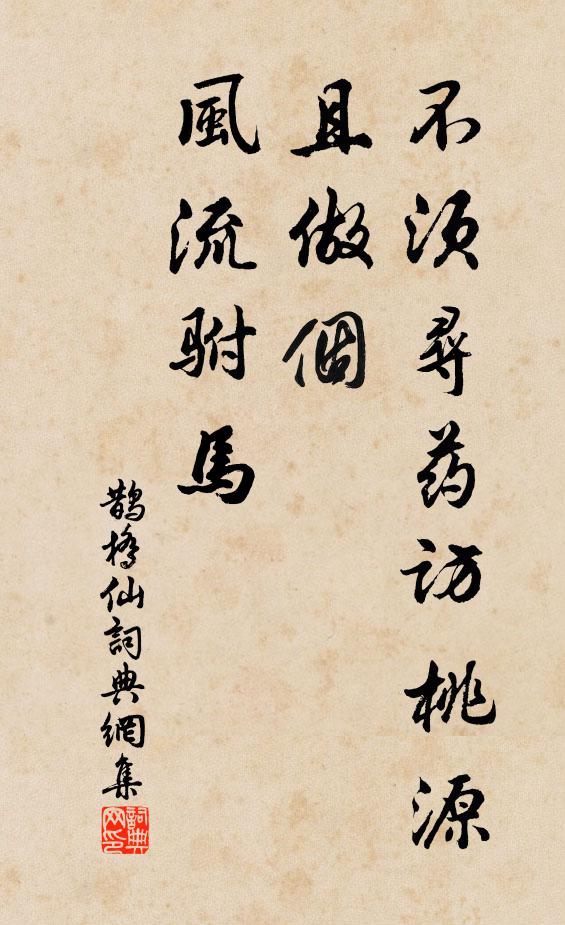 不须尋药访桃源
且做個
風流駙馬
鵲橋仙詞典網集
詞典网印